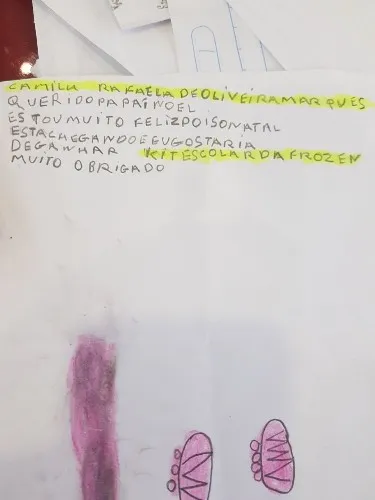 CAMILA RAFAELA DE OLIVEIRA MARQUES
QUERIDO PAPAI NOEL
ESTOU MUITO FELIZ POIS O NATAL
ESTA CHEGANDO E EU GOSTARIA
DE GANHAR KIT ESCOLAR DA FROZEN
MUITO OBRIGADO